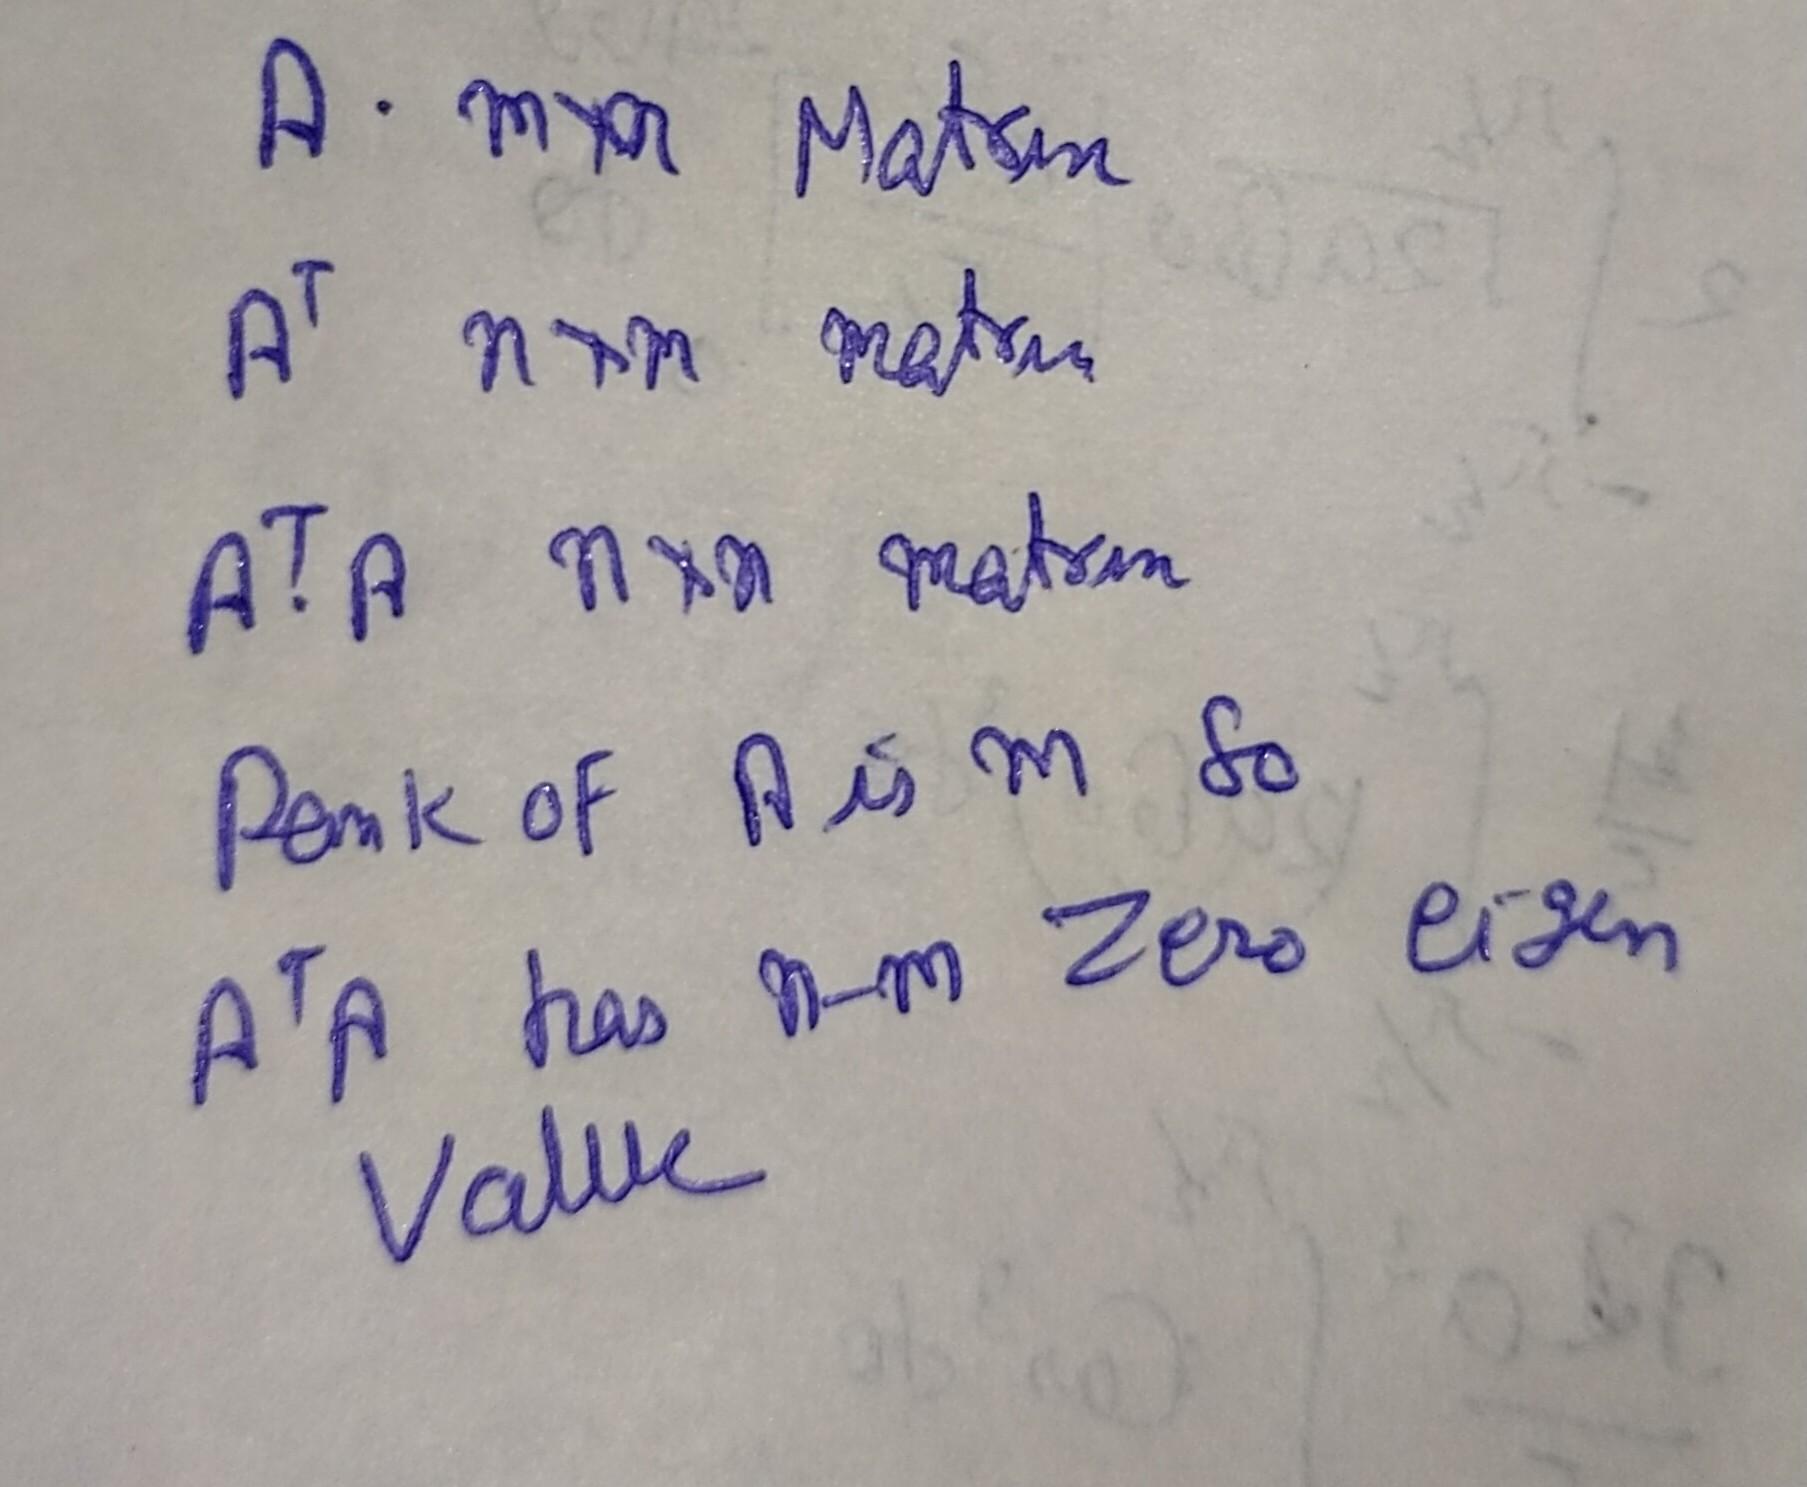 A. m×n Matrix
Aᵀ n×m matrix
Aᵀ.A n×n matrix
Rank of A is m So
AᵀA has n-m Zero eigen
Value